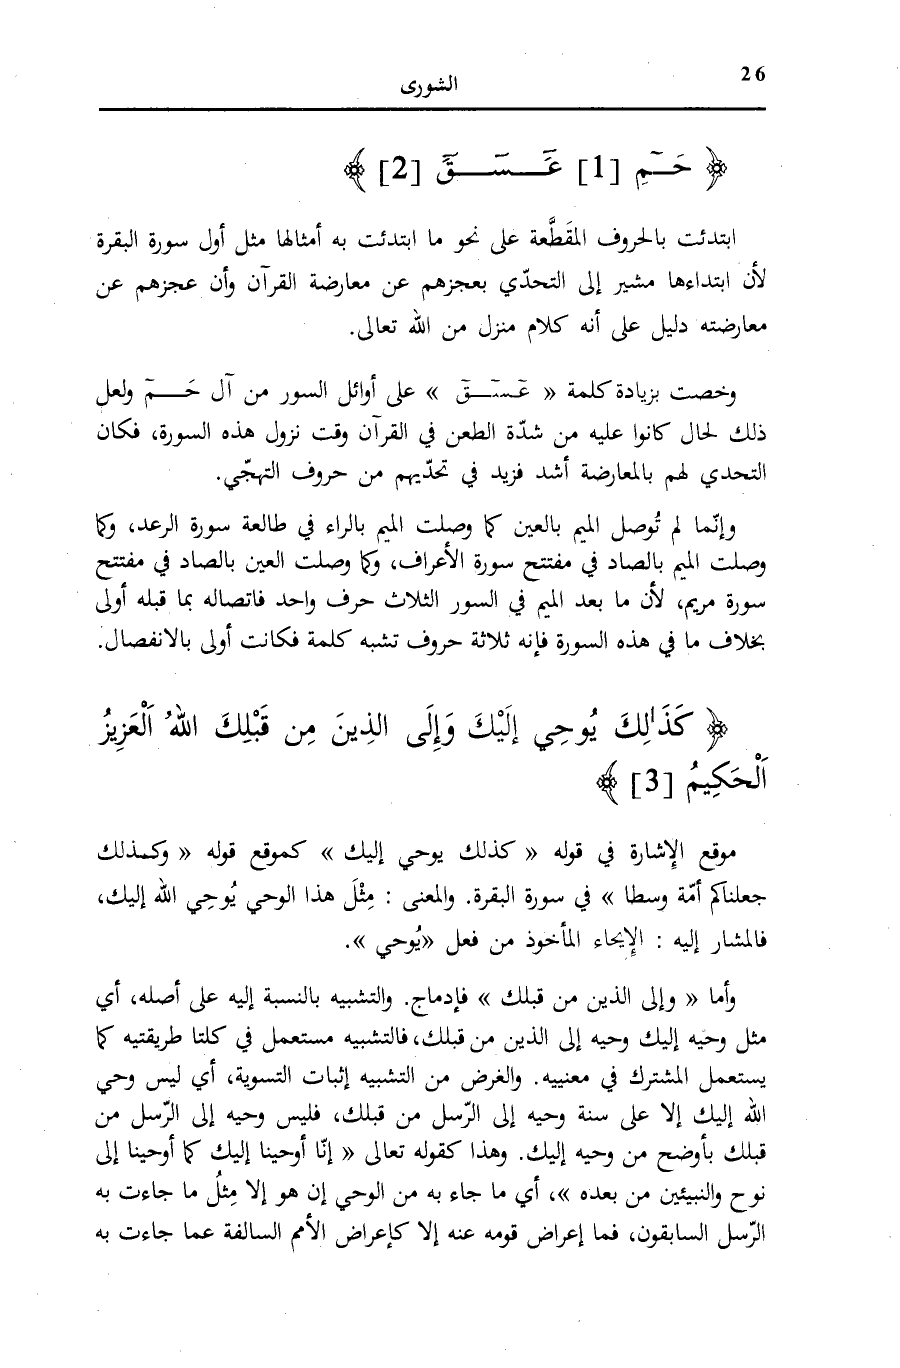 26
الشورى
﴿ حَـمِٓ [1] عَٓـسَـقَٓ [2] ﴾
ابتدئت بالحروف المقَطَّعة على نحو ما ابتدئت به أمثالها مثل أول سورة البقرة
لأن ابتداءها مشير إلى التحدّي بعجزهم عن معارضة القرآن وأن عجزهم عن
معارضته دليل على أنه كلام منزل من الله تعالى.
وخصت بزيادة كلمة « عَـسَـقَ » على أوائل السور من آل حَـمَ ولعل
ذلك لحال كانوا عليه من شدّة الطعن في القرآن وقت نزول هذه السورة، فكان
التحدي لهم بالمعارضة أشد فزيد في تحدّيهم من حروف التهجّي.
وإنّما لم تُوصل الميم بالعين كما وصلت الميم بالراء في طالعة سورة الرعد، وكما
وصلت الميم بالصاد في مفتتح سورة الأعراف، وكما وصلت العين بالصاد في مفتتح
سورة مريم، لأن ما بعد الميم في السور الثلاث حرف واحد فاتصاله بما قبله أولى
بخلاف ما في هذه السورة فإنه ثلاثة حروف تشبه كلمة فكانت أولى بالانفصال.
﴿ كَذَٰلِكَ يُوحِي إلَيْكَ وَإِلَى الذِينَ مِن قَبْلِكَ اللهُ اَلْعَزِيزُ
اَلْحَكِيمُ [3] ﴾
موقع الإشارة في قوله « كذلك يوحي إليك » كموقع قوله « وكـذلك
جعلناكم أمّة وسطا » في سورة البقرة. والمعنى : مِثْلَ هذا الوحي يُوحِي الله إليك،
فالمشار إليه : الإيحاء المأخوذ من فعل «يُوحي ».
وأما « وإلى الذين من قبلك » فإدماج. والتشبيه بالنسبة إليه على أصله، أي
مثل وحيه إليك وحيه إلى الذين من قبلك، فالتشبيه مستعمل في كلتا طريقتيه كما
يستعمل المشترك في معنييه. والغرض من التشبيه إثبات التسوية، أي ليس وحي
الله إليك إلا على سنة وحيه إلى الرّسل من قبلك، فليس وحيه إلى الرّسل من
قبلك بأوضح من وحيه إليك. وهذا كقوله تعالى « إنّا أوحينا إليك كما أوحينا إلى
نوح والنبيئين من بعده »، أي ما جاء به من الوحي إن هو إلا مِثلُ ما جاءت به
الرّسل السابقون، فما إعراض قومه عنه إلا كإعراض الأمم السالفة عما جاءت به